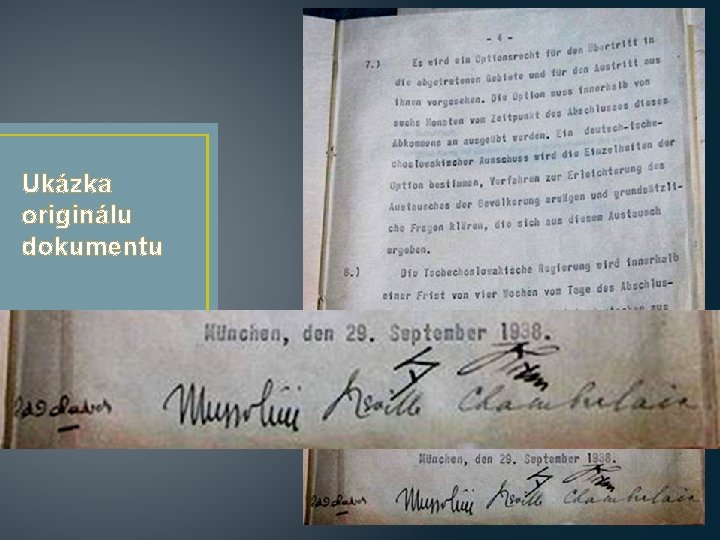 Ukázka
originálu
dokumentu
- 4 -
7.) Es wird ein Optionsrecht für den Übertritt in
die abgetretenen Gebiete und für den Austritt aus
ihnen vorgesehen. Die Option muss innerhalb von
sechs Monaten vom Zeitpunkt des Abschlusses dieses
Abkommens an ausgeübt werden. Ein deutsch-tsche-
choslowakischer Ausschuss wird die Einzelheiten der
Option bestimmen, Verfahren zur Erleichterung des
Austausches der Bevölkerung erwägen und grundsätzli-
che Fragen klären, die sich aus diesem Austausch
ergeben.
8.) Die Tschechoslowakische Regierung wird innerhalb
einer Frist von vier Wochen vom Tage des Abschlus-
aus
München, den 29. September 1938.
Mussolini Neville Chamberlain
München, den 29. September 1938.
Mussolini Neville Chamberlain